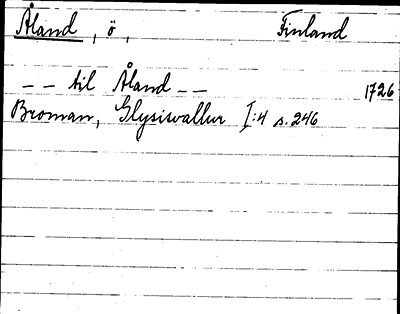 Åland, ö, Finland
— — til Åland — — 1726
Broman, Glysisvallur I:4 s. 246